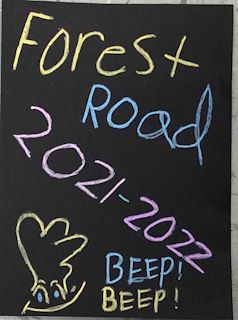 Forest
Road
2021-2022
BEEP!
BEEP!